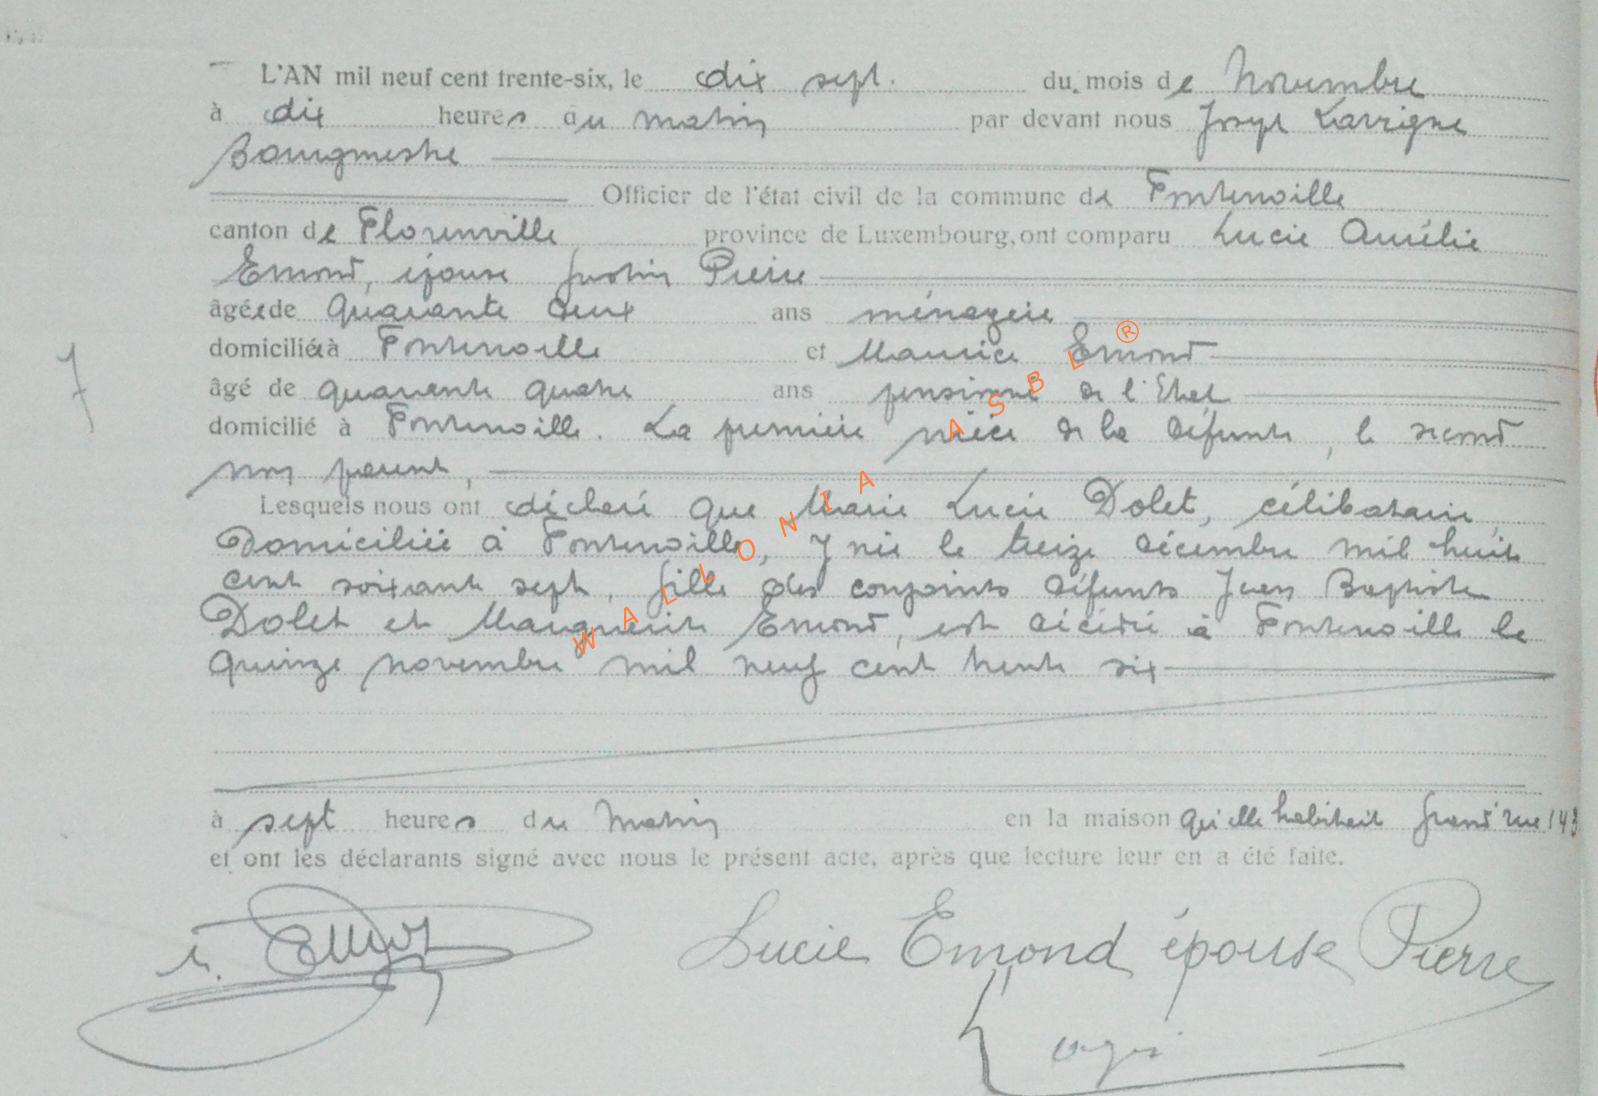 L'AN mil neuf cent trente-six, le dix sept. du mois de Novembre
à dix heures du matin par devant nous Joseph Lavigne
Bourgmestre
Officier de l'état civil de la commune de Fontenoille
canton de Florenville province de Luxembourg, ont comparu Lucie Amélie
Emond, épouse Justin Pierre
âgée de quarante deux ans ménagère
domiciliée à Fontenoille et Maurice Emond
âgé de quarante quatre ans pensionné de l'Etat
domicilié à Fontenoille. La première nièce de la défunte, le second
non parent,
Lesquels nous ont déclaré que Marie Lucie Dolet, célibataire,
domiciliée à Fontenoille, y née le treize décembre mil huit
cent soixant sept, fille des conjoints défunts Jean Baptiste
Dolet et Marguerite Emond, est décédée à Fontenoille le
quinze novembre mil neuf cent trente six
à sept heures du matin en la maison qu'elle habitait grand'rue 143
et ont les déclarants signé avec nous le présent acte, après que lecture leur en a été faite.
Lucie Emond épouse Pierre
WALLONIA ASBL ®
7